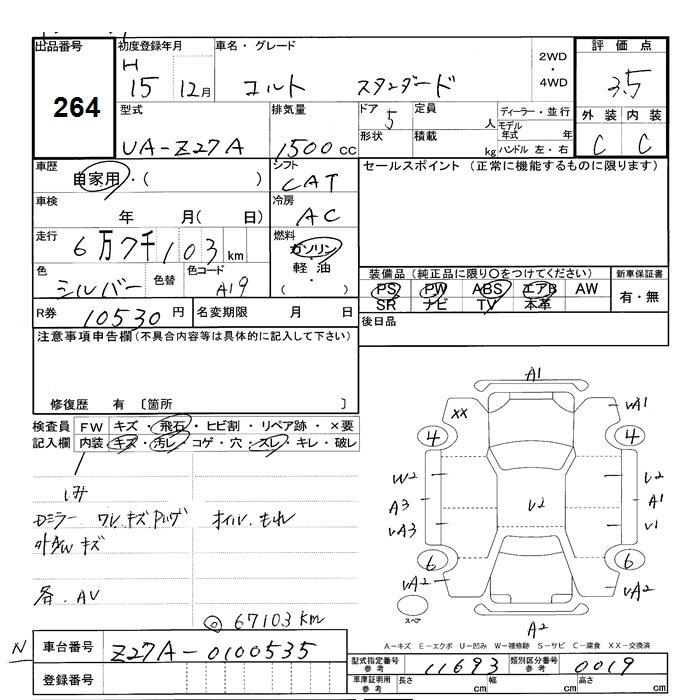 出品番号
264
初度登録年月
H
15 12月
車名・グレード
コルト スタンダード
2WD
・
4WD
評価点
3.5
外装 内装
C C
型式
UA-Z27A
排気量
1500 CC
ドア 5
定員 人
形状
積載 kg
ディーラー・並行
モデル年式 年
ハンドル 左・右
車歴
自家用・( )
シフト
CAT
セールスポイント (正常に機能するものに限ります)
車検
年 月( 日)
冷房
AC
走行
6万7千103km
燃料
ガソリン
・
軽・油
・
( )
色
シルバー
色替
色コード
A19
装備品(純正品に限り〇をつけてください)
PS PW ABS エアB AW
SR ナビ TV 本革
新車保証書
有・無
R券 10530円
名変期限 月 日
後日品
注意事項申告欄(不具合内容等は具体的に記入して下さい)
修復歴 有 〔箇所 〕
検査員
記入欄
FW キズ・飛石・ヒビ割・リペア跡・×要
内装 キズ・汚レ・コゲ・穴・スレ・キレ・破レ
しみ
Dミラー ワレ.キズ オイル.もれ
外 キズ
各.AV
◎ 67103km
A1
XX
UA1
4
4
W2
U2
A3
U2
A1
UA3
U1
6
6
UA2
UA2
スペア
A2
A-キズ E-エクボ U-凹み W-補修跡 S-サビ C-腐食 XX-交換済
N
車台番号
Z27A-0100535
登録番号
型式指定番号
参考
11693
類別区分番号
参考
0019
車庫証明用
参考
長さ cm
幅 cm
高さ cm